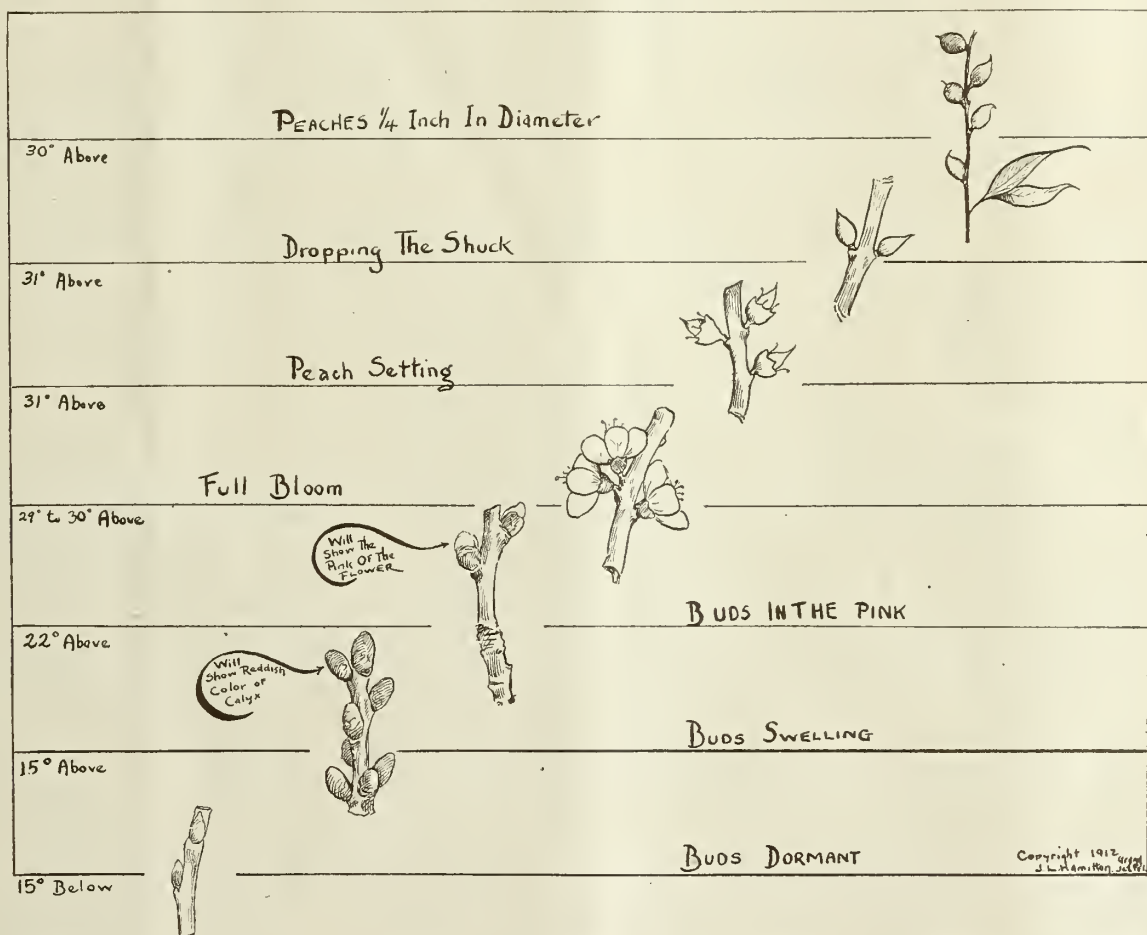 PEACHES 1/4 Inch In Diameter
30° Above
Dropping The Shuck
31° Above
Peach Setting
31° Above
Full Bloom
29° to 30° Above
Will
Show The
Pink Of The
FLOWER
BUDS IN THE PINK
22° Above
Will
Show Reddish
Color of
Calyx
BUDS SWELLING
15° Above
BUDS DORMANT
Copyright 1912
J. L. Hamilton.
15° Below